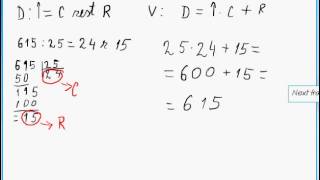 D : Î = C rest R
V: D = Î · C + R
615 : 25 = 24 r. 15
25 · 24 + 15 =
615 25
24
50
= 600 + 15 =
115
C
100
= 15
R
= 615